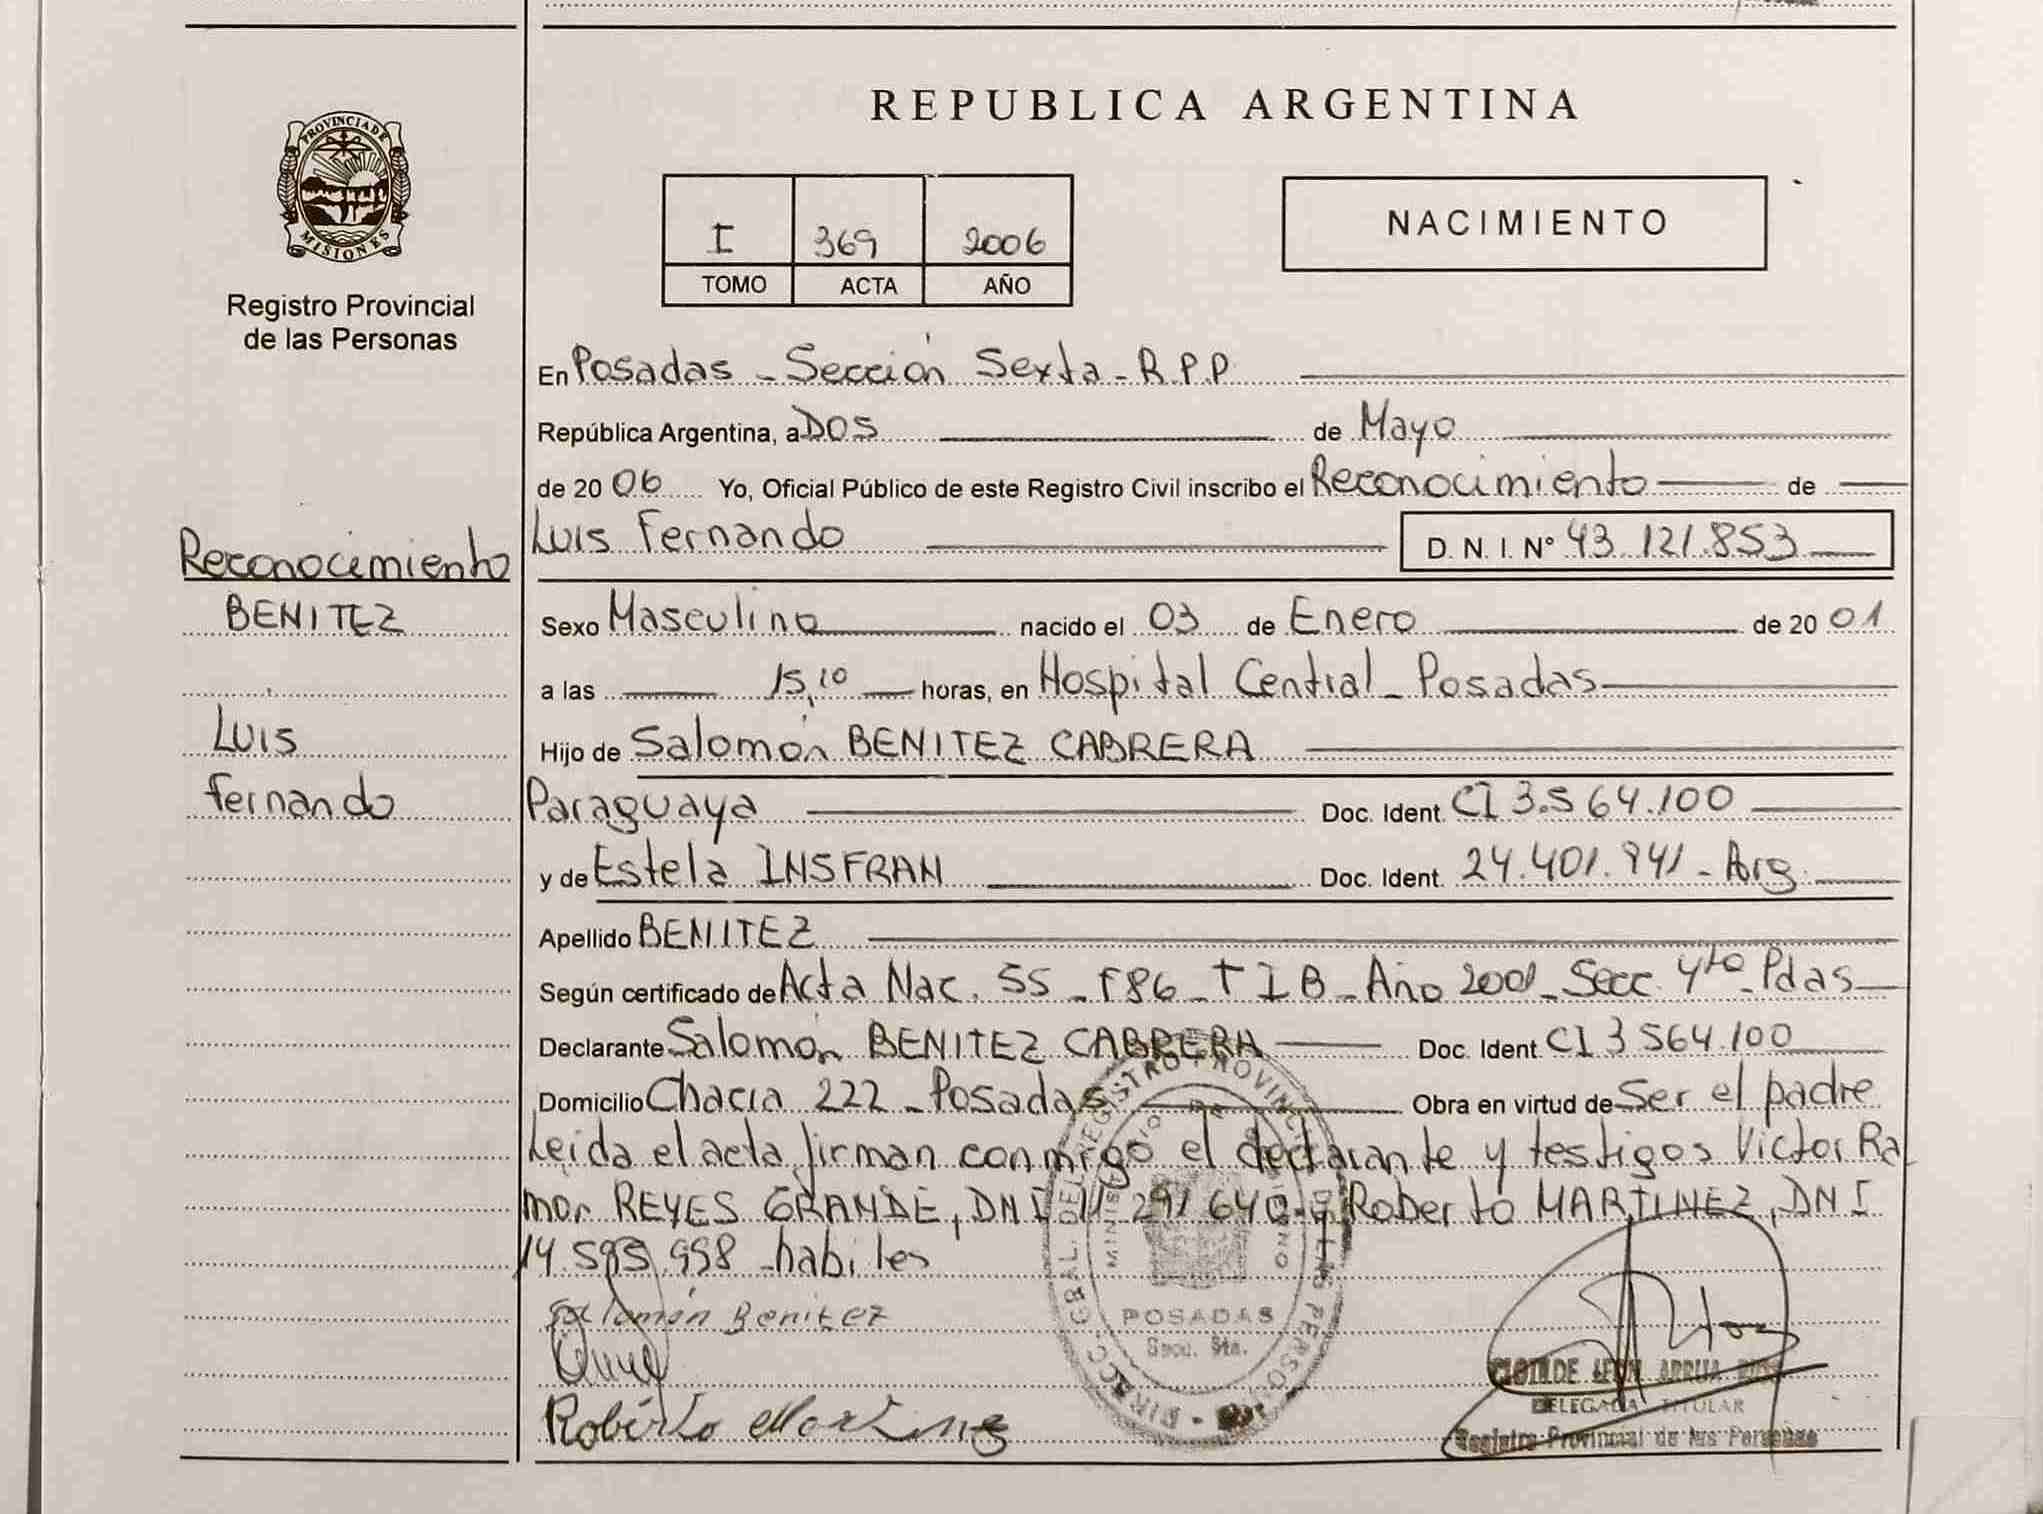 REPUBLICA ARGENTINA
PROVINCIA DE
MISIONES
Registro Provincial
de las Personas
I 369 2006
TOMO ACTA AÑO
NACIMIENTO
En Posadas - Sección Sexta - R.P.P.
República Argentina, a Dos de Mayo
de 20 06 Yo, Oficial Público de este Registro Civil inscribo el Reconocimiento de
Luis Fernando D. N. I. N° 43 121.853
Reconocimiento
BENITEZ
Luis
Fernando
Sexo Masculino nacido el 03 de Enero de 20 01
a las 15,10 horas, en Hospital Central - Posadas
Hijo de Salomón BENITEZ CABRERA
Paraguaya Doc. Ident. CI 3.564.100
y de Estela INSFRAN Doc. Ident. 24.401.941 - Arg.
Apellido BENITEZ
Según certificado de Acta Nac. 55 - F86 - T I B - Año 2001 - Secc. 4ta - Pdas
Declarante Salomón BENITEZ CABRERA Doc. Ident. CI 3 564.100
Domicilio Chacra 222 - Posadas Obra en virtud de Ser el padre
Leída el acta firman conmigo el declarante y testigos Victor Ra
mon REYES GRANDE, DNI 11 291 640 y Roberto MARTINEZ, DNI
14.595.998 - habiles
Salomón Benitez
Roberto Martinez
DIRECC. GRAL. DEL REGISTRO PROVINCIAL DE LAS PERSONAS
POSADAS
Secc. 6ta.
CLOTILDE ARRUA
DELEGADA TITULAR
Registro Provincial de las Personas